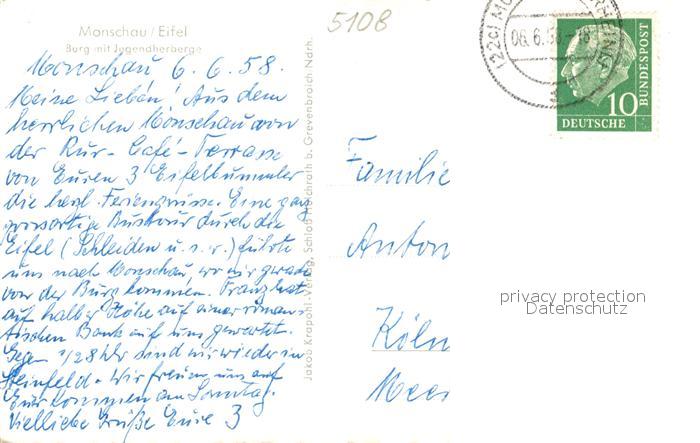 5108
Monschau / Eifel
Burg mit Jugendherberge
Monschau 6.6.58.
Meine Lieben! Aus dem
herrlichen Monschau von
der Rur-Café-Terrasse
von Euren 3 Eifelbummler
die herzl. Feriengrüsse. Eine ganz
grossartige Bustour durch die
Eifel (Schleiden u.s.w.) führte
uns nach Monschau, wo wir gerade
von der Burg kommen. Franz hat
auf halber Höhe auf einer roman-
tischen Bank auf uns gewartet.
Gegen 1/2 8 Uhr sind wir wieder in
Steinfeld. Wir freuen uns auf
Euer kommen am Sonntag.
Vielliebe Grüße Eure 3
Jakob Krapohl-Verlag, Schloß Hülchrath b. Grevenbroich Ndrh.
(22c)
06.6.58
10
DEUTSCHE
BUNDESPOST
Familie
Anton
Köln
privacy protection
Datenschutz